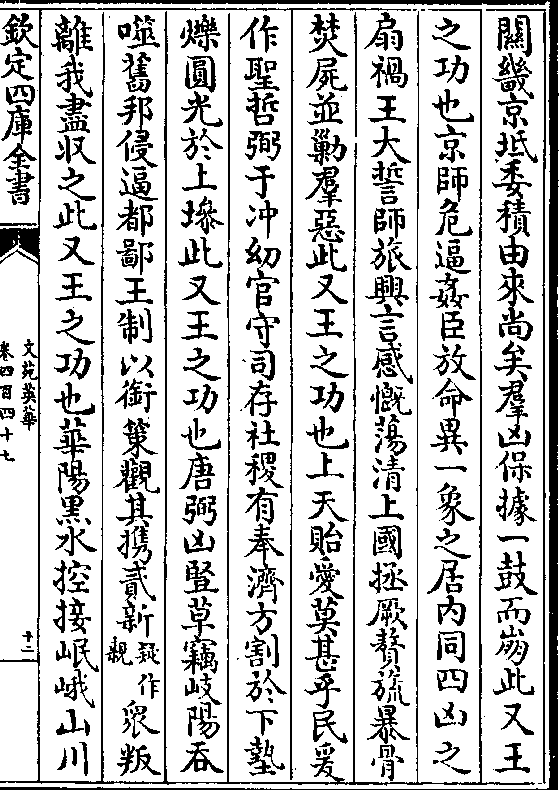 關畿京坻委積由來尚矣羣凶保據一鼓而崩此又王
之功也京師危逼姦臣放命異一象之居内同四凶之
扇禍王大誓師旅興言感慨蕩清上國拯厥贅旒暴骨
焚屍並勦羣惡此又王之功也上天貽愛莫甚乎民爰
作聖哲弼于冲幼官守司存社稷有奉濟方割於下墊
爍圓光於上墋此又王之功也唐弼凶豎草竊岐陽吞
噬舊邦侵逼都鄙王制以銜策觀其携貳新疑作親衆叛
離我盡收之此又王之功也華陽黒水控接岷峨山川
欽定四庫全書
文苑英華
卷四百四十七
十二